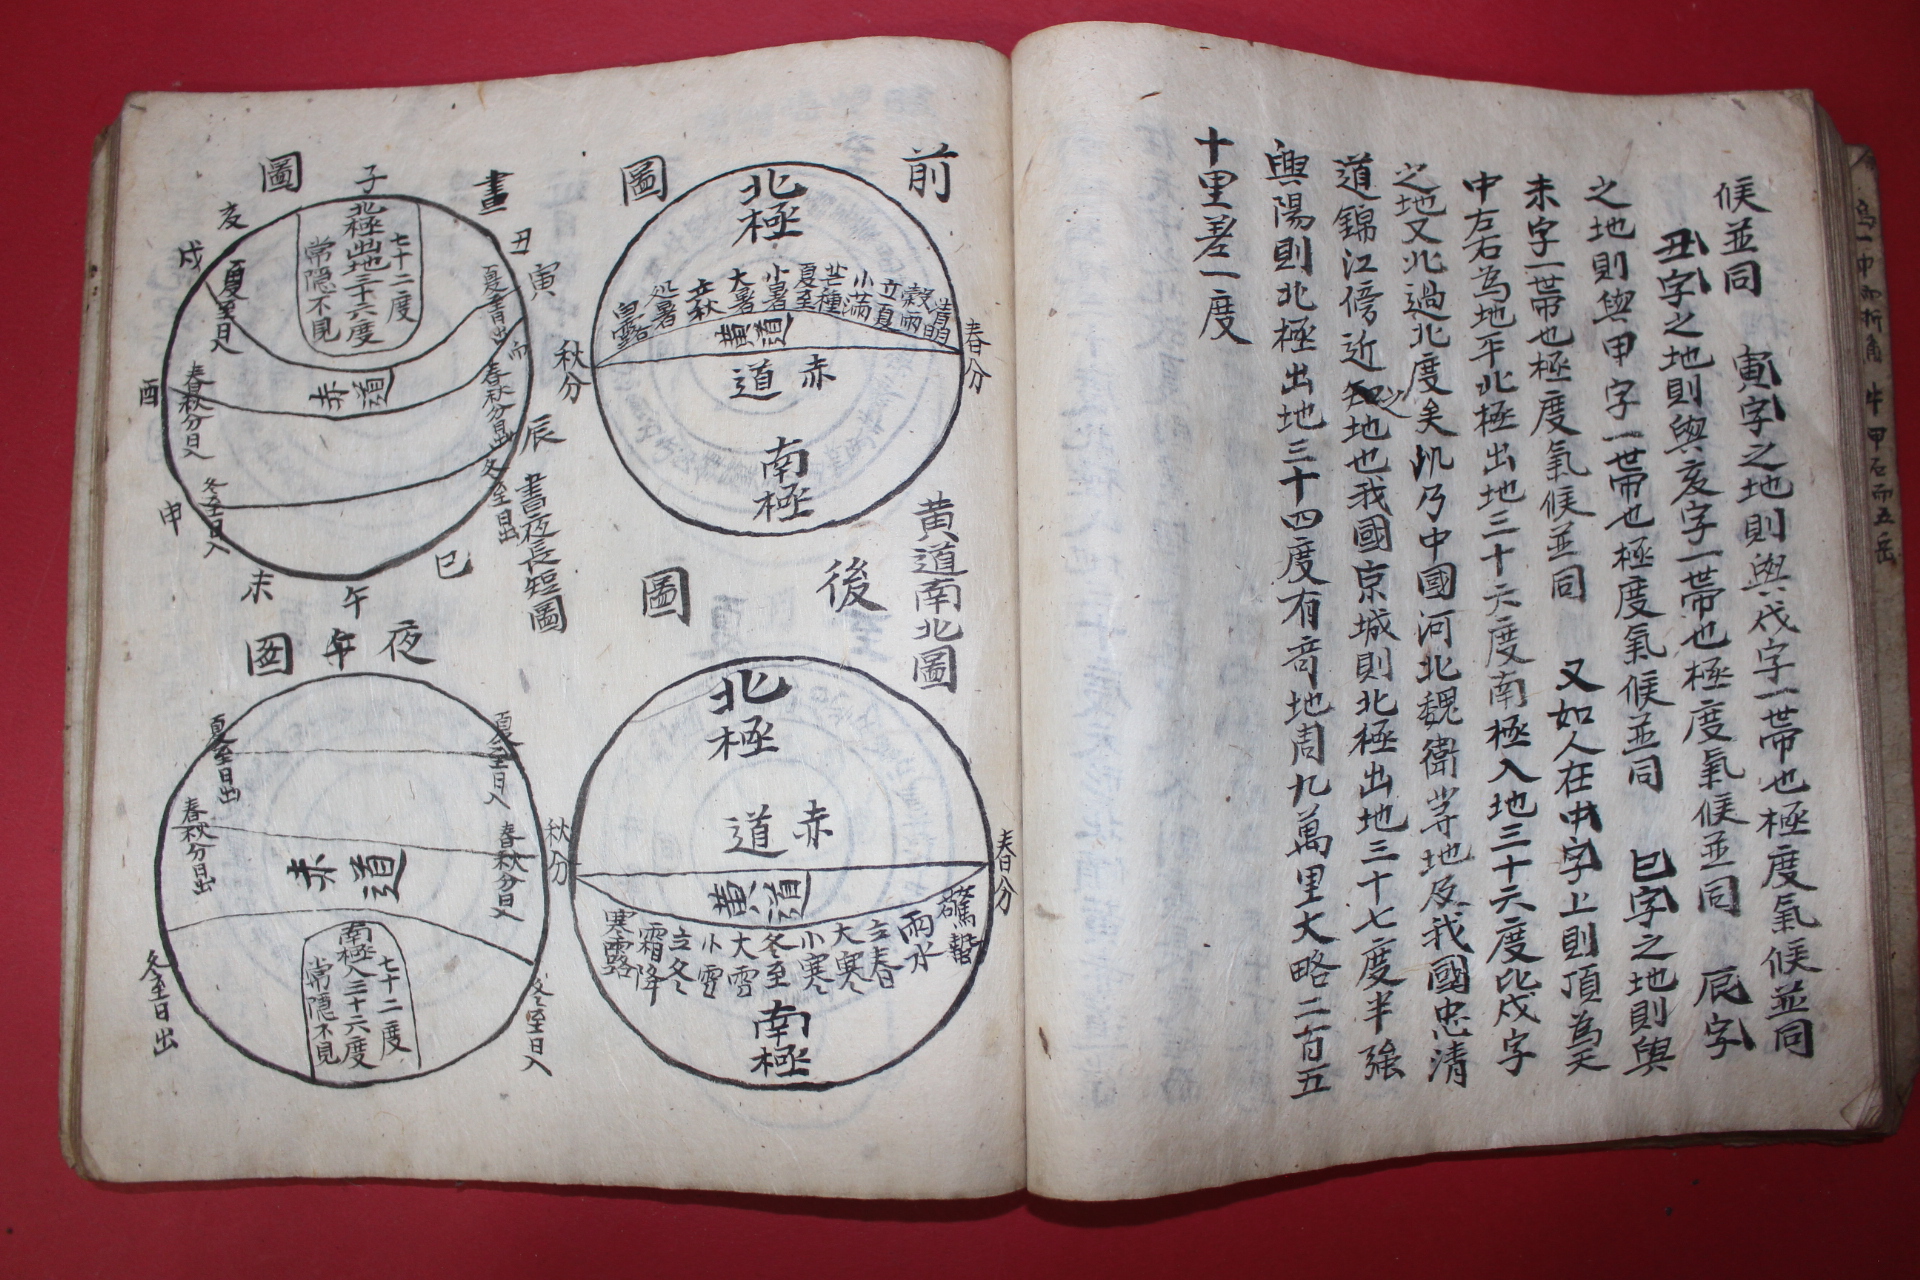 候並同　寅字之地則與戌字一帶也極度氣候並同
丑字之地則與亥字一帶也極度氣候並同　辰字
之地則與甲字一帶也極度氣候並同　巳字之地則與
未字一帶也極度氣候並同　又如人在中字上則頂為天
中左右為地平北極出地三十六度南極入地三十六度比戌字
之地又北過北度矣此乃中國河北魏衛等地及我國忠清
道錦江傍近之地也我國京城則北極出地三十七度半強
興陽則北極出地三十四度有奇地周九萬里大略二百五
十里差一度
前圖
北極
清明
穀雨
立夏
小滿
芒種
夏至
小暑
大暑
立秋
処暑
白露
黃道
春分
秋分
赤道
南極
黃道南北圖
後圖
北極
赤道
春分
秋分
黃道
驚蟄
雨水
立春
大寒
小寒
冬至
大雪
小雪
立冬
霜降
寒露
南極
晝圖
子
丑
寅
辰
巳
午
未
申
酉
戌
亥
七十二度
北極出地三十六度
常隱不見
夏至日入
春秋分日出
春秋分日入
赤道
冬至日出
冬至日入
晝夜長短圖
夜
圖
夏至日入
夏至日出
春秋分日入
春秋分日出
赤道
七十二度
南極入三十六度
常隱不見
冬至日入
冬至日出